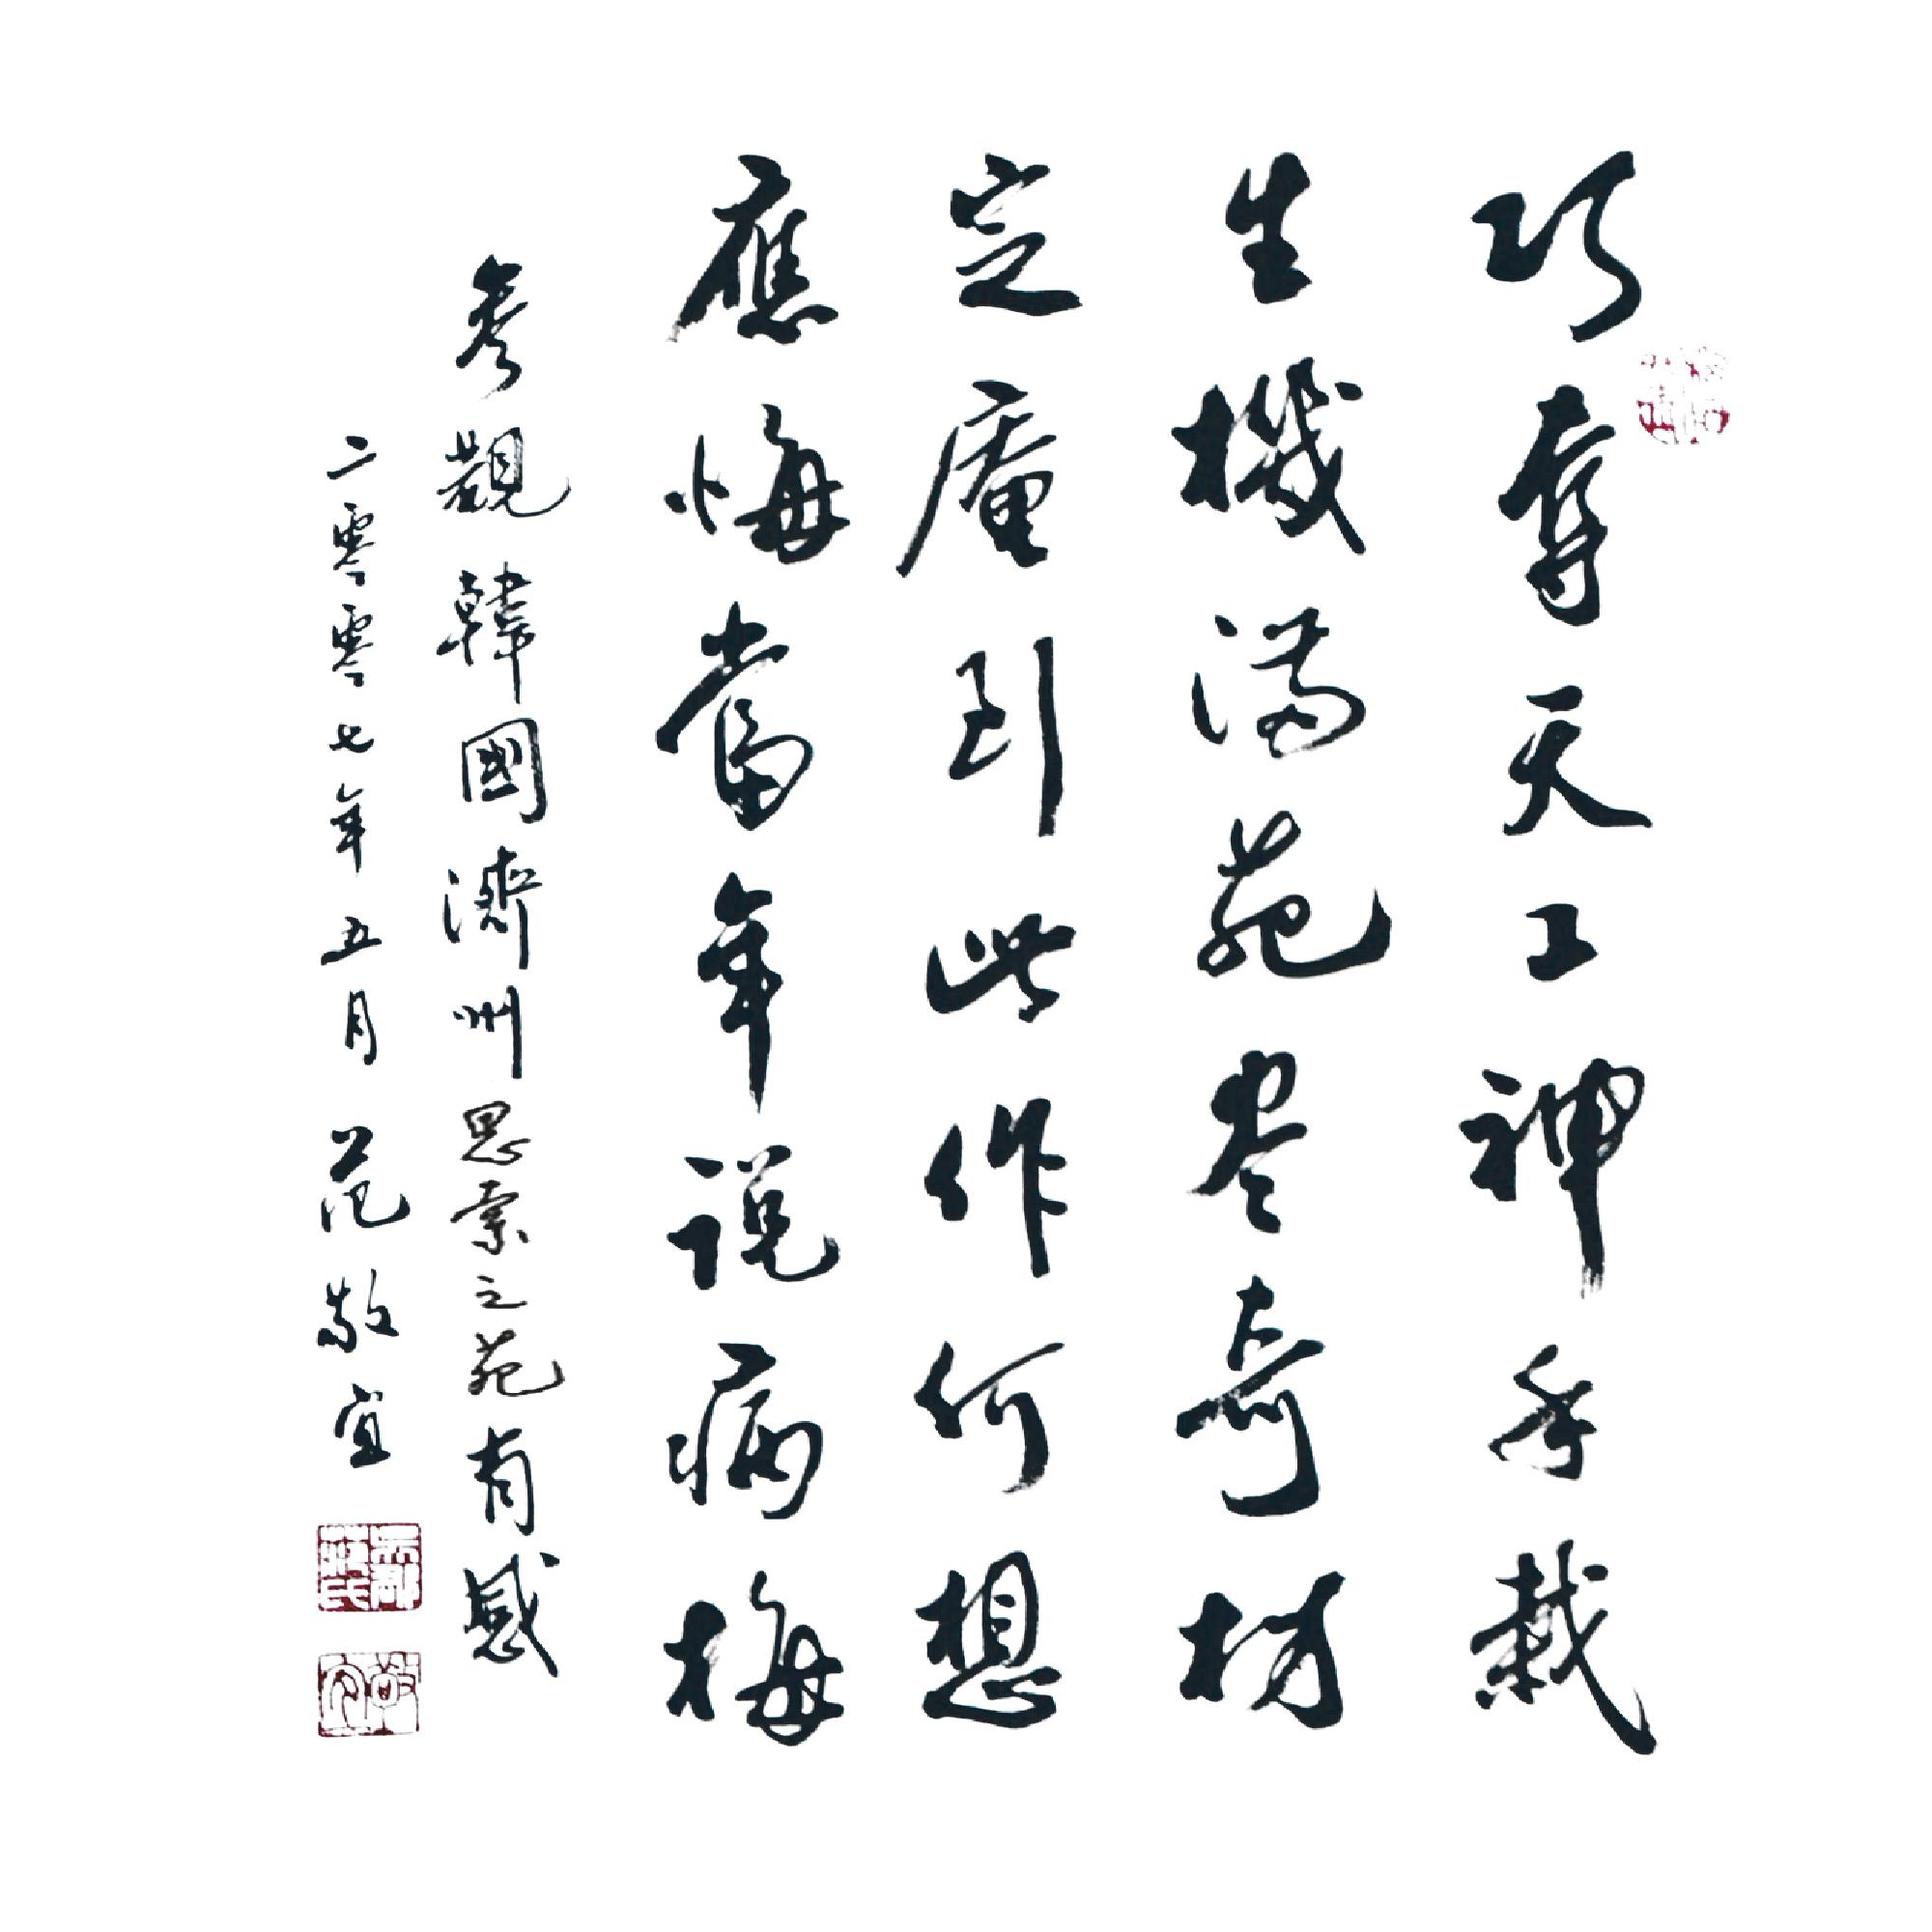 巧奪天工神手栽
生機滿苑尽奇材
定庵到此作何想
應悔當年説病梅
参觀韓國濟州思索之苑有感
二零零七年五月范敬宜